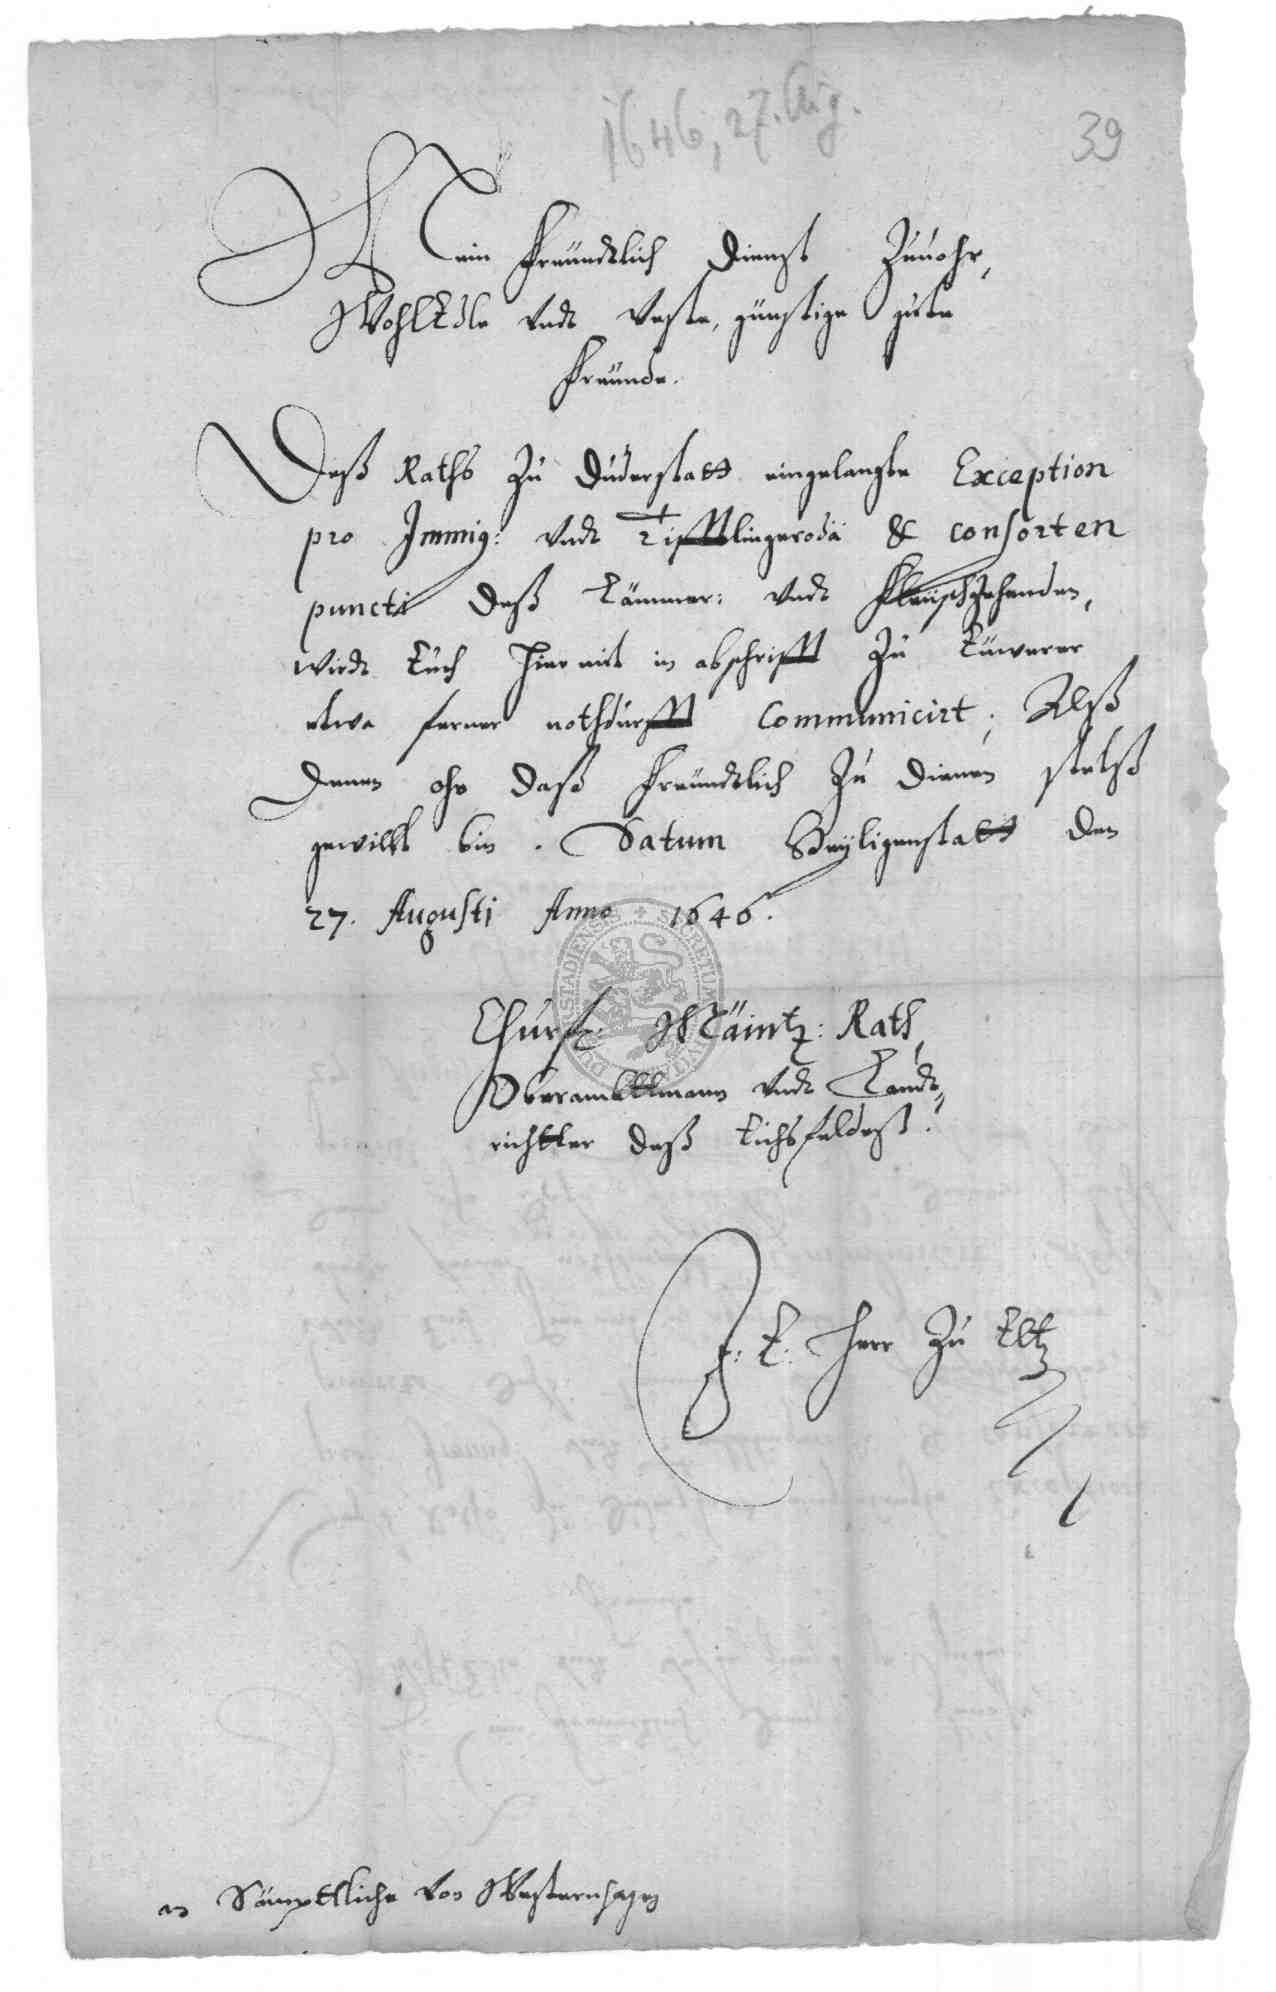 1646, 27. Aug.
39
Mein freundtlich dienst Zuuohr,
WohlEdle Undt Veste, günstige gute
freunde.
Deß Raths Zu Duderstatt eingelangte Exception
pro Immig: Undt Tifftlingerodä & consorten
puncti deß Lämmer: Undt fleischzehenden,
wirdt Euch hiermit in abschrifft Zu Euwerer
etwa ferner nothdurfft communicirt, Alß
denen ohr daß freundtlich Zu dienen
gewillt bin. Datum Heyligenstatt den
27. Augusti Anno 1646.
Churf: Mäintz: Rath,
Oberambttmann Undt Landt-
richtter deß Eichsfeldeß.
SECRETUM
J: E: Herr Zu Eltz
an Sämptliche von Westernhagen